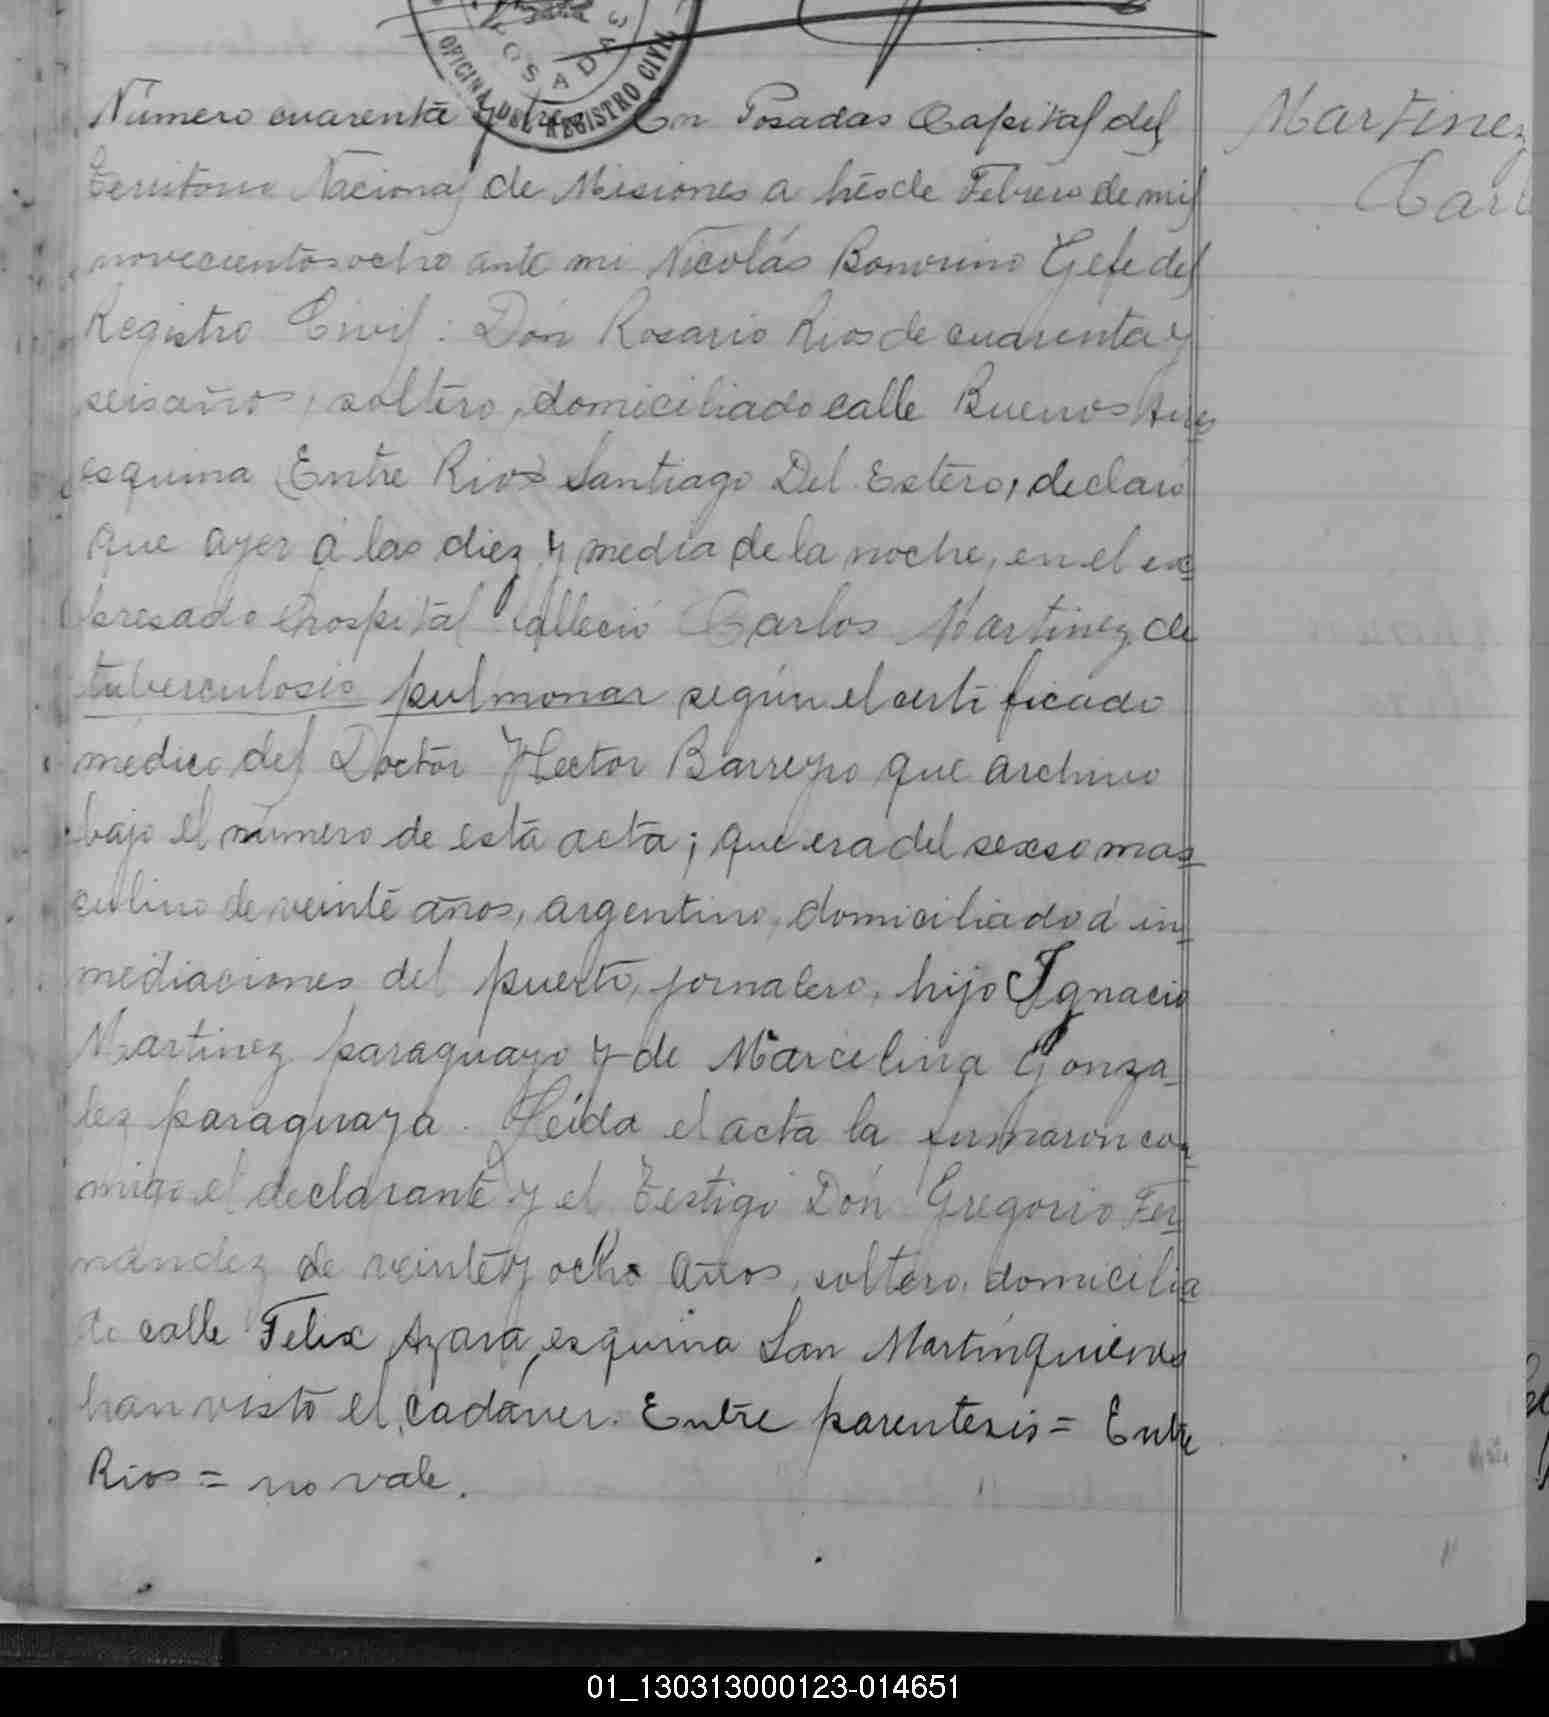 POSADAS
OFICINA DEL REGISTRO CIVIL
Número cuarenta y tres En Posadas Capital del
Territorio Nacional de Misiones a trés de Febrero de mil
novecientos ocho ante mi Nicolás Bonorino Gefe del
Registro Civil: Dón Rosario Rios de cuarenta y
seis años, soltero, domiciliado calle Buenos Aires
esquina (Entre Rios) Santiago Del Estero, declaró
que ayer á las diez y media de la noche, en el ex-
presado hospital falleció Carlos Martinez de
tuberculosis pulmonar según el certificado
médico del Doctór Hector Barreyro que archivo
bajo el número de esta acta; que era del sexso mas-
culino de veinte años, argentino, domiciliado á in-
mediaciones del puerto, jornalero, hijo Ignacio
Martinez paraguayo y de Marcelina Gonza-
lez paraguaya. Leida el acta la firmaron con-
migo el declarante y el Testigo Dón Gregorio Fer-
nandez de veinte y ocho años, soltero, domicilia-
do calle Felix Azara, esquina San Martín quienes
han visto el cadáver. Entre parentesis = Entre
Rios = no vale.
Martinez
Carl
01_130313000123-014651